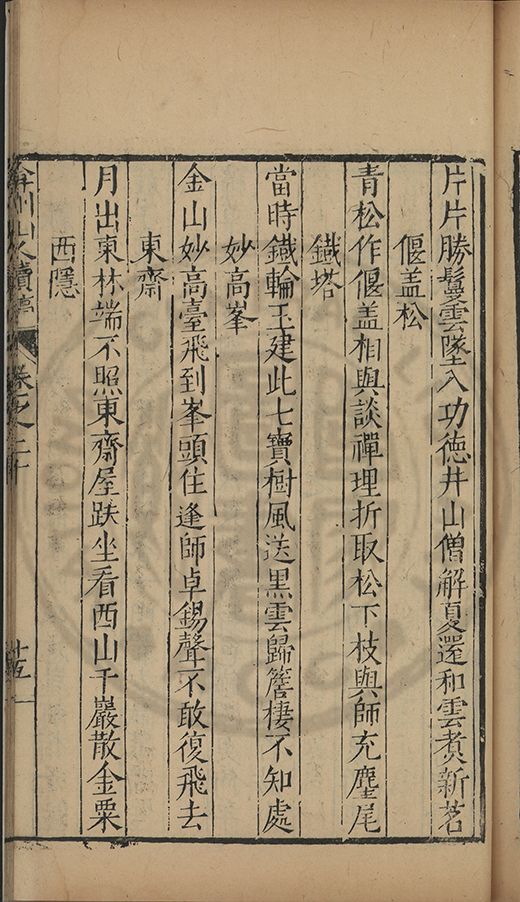 片片勝鬘雲墜入功德井山僧解夏還和雲煮新茗
偃盖松
青松作偃盖相與談禪理折取松下枝與師充麈尾
鐵塔
當時鐵輪王建此七寶樹風送黑雲歸簷棲不知處
妙高峯
金山妙高臺飛到峯頭住逢師卓錫聲不敢復飛去
東齋
月出東林端不照東齋屋趺坐看西山千巖散金粟
西隱
弇州山人續稾 卷之二十 十五